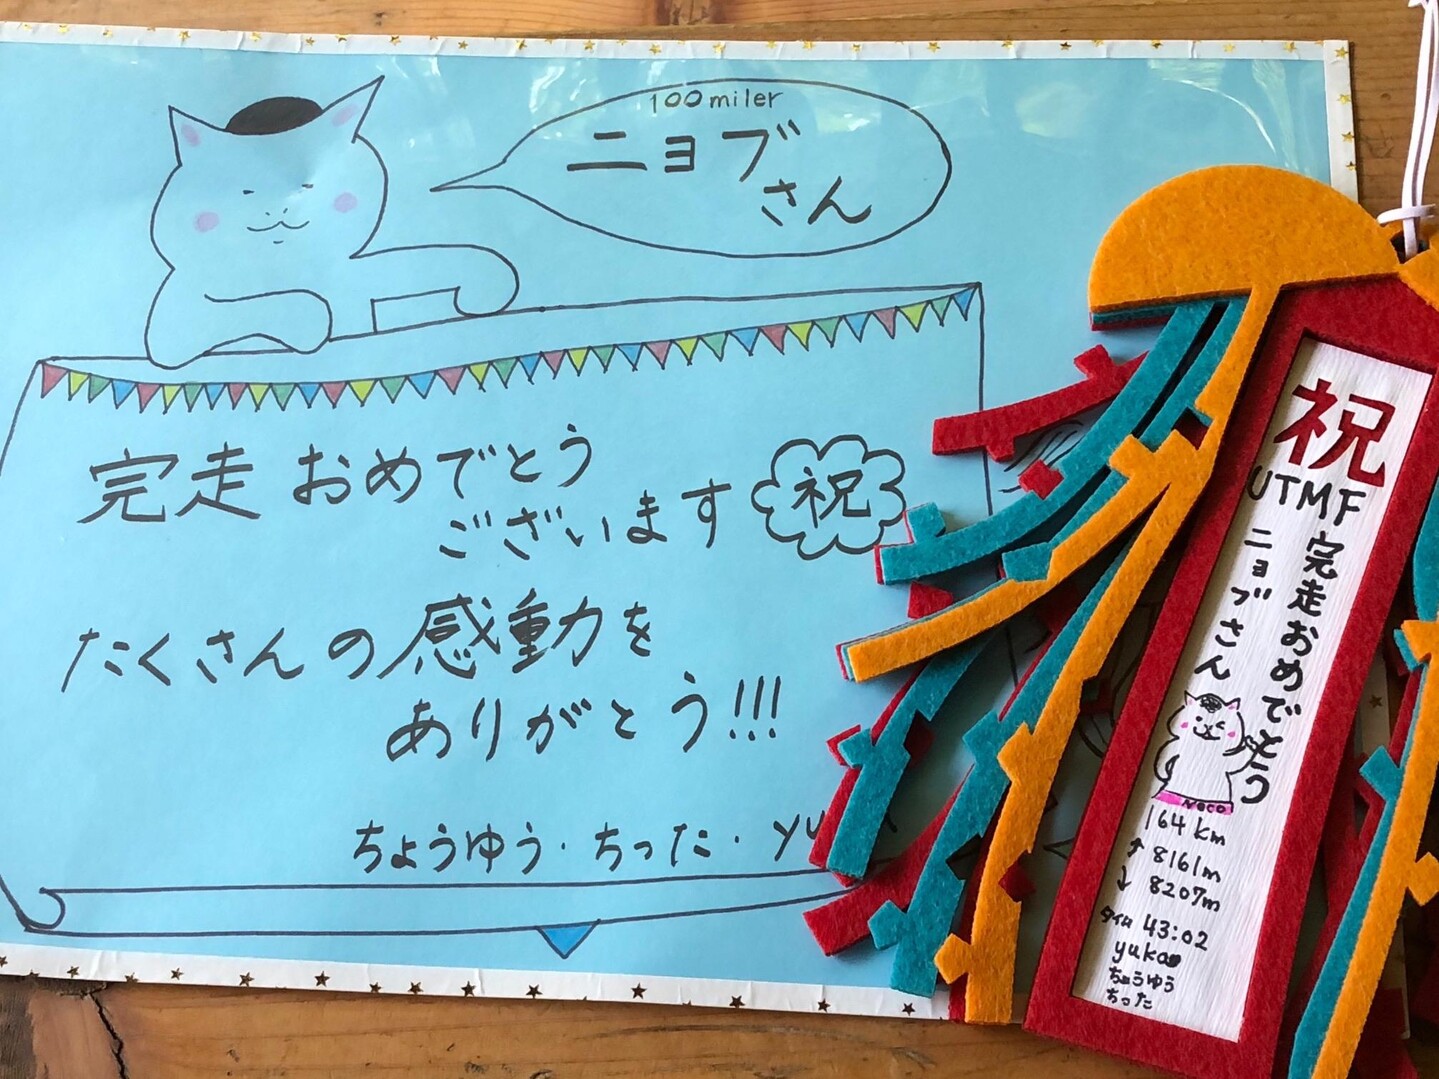 100miler
ニョブ
さん
完走 おめでとう
ございます
祝
たくさんの感動を
ありがとう!!!
ちょうゆう・ちった・
祝
UTMF
完走おめでとう
ニョブさん
NOCO
164km
↑ 8161m
↓ 8207m
タイム 43:02
yuka
ちょうゆう
ちった